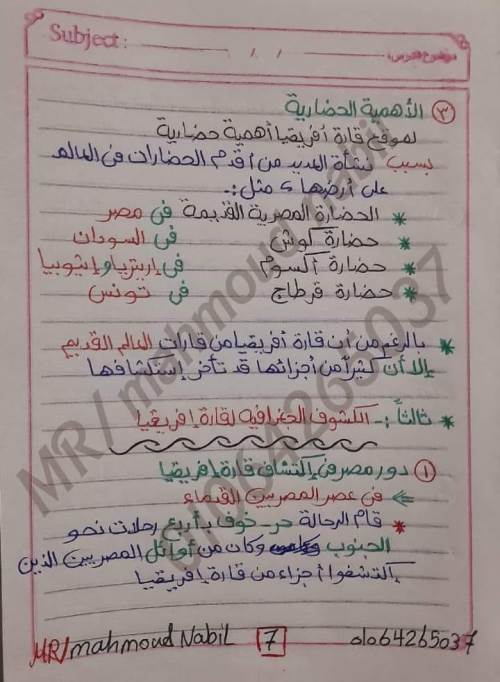 Subject: / / موضوع الدرس:
٣ الأهمية الحضارية
لموقع قارة أفريقيا أهمية حضارية
بسبب نشأة العديد من أقدم الحضارات فى العالم
على أرضها مثل:-
* الحضارة المصرية القديمة فى مصر
* حضارة كوش فى السودان
* حضارة أكسوم فى إريتريا و إثيوبيا
* حضارة قرطاج فى تونس
* بالرغم من أن قارة أفريقيا من قارات العالم القديم
إلا أن كثيراً من أجزائها قد تأخر إستكشافها
* ثالثاً:- الكشوف الجغرافيه لقارة إفريقيا
١ دور مصر فى إكتشاف قارة إفريقيا
فى عصر المصريين القدماء
* قام الرحالة حر-خوف بأربع رحلات نحو
الجنوب وكان من أوائل المصريين الذين
إكتشفوا أجزاء من قارة إفريقيا
MR/mahmoud Nabil 7 01064265037
MR/ mahmoud nabil
01064265037